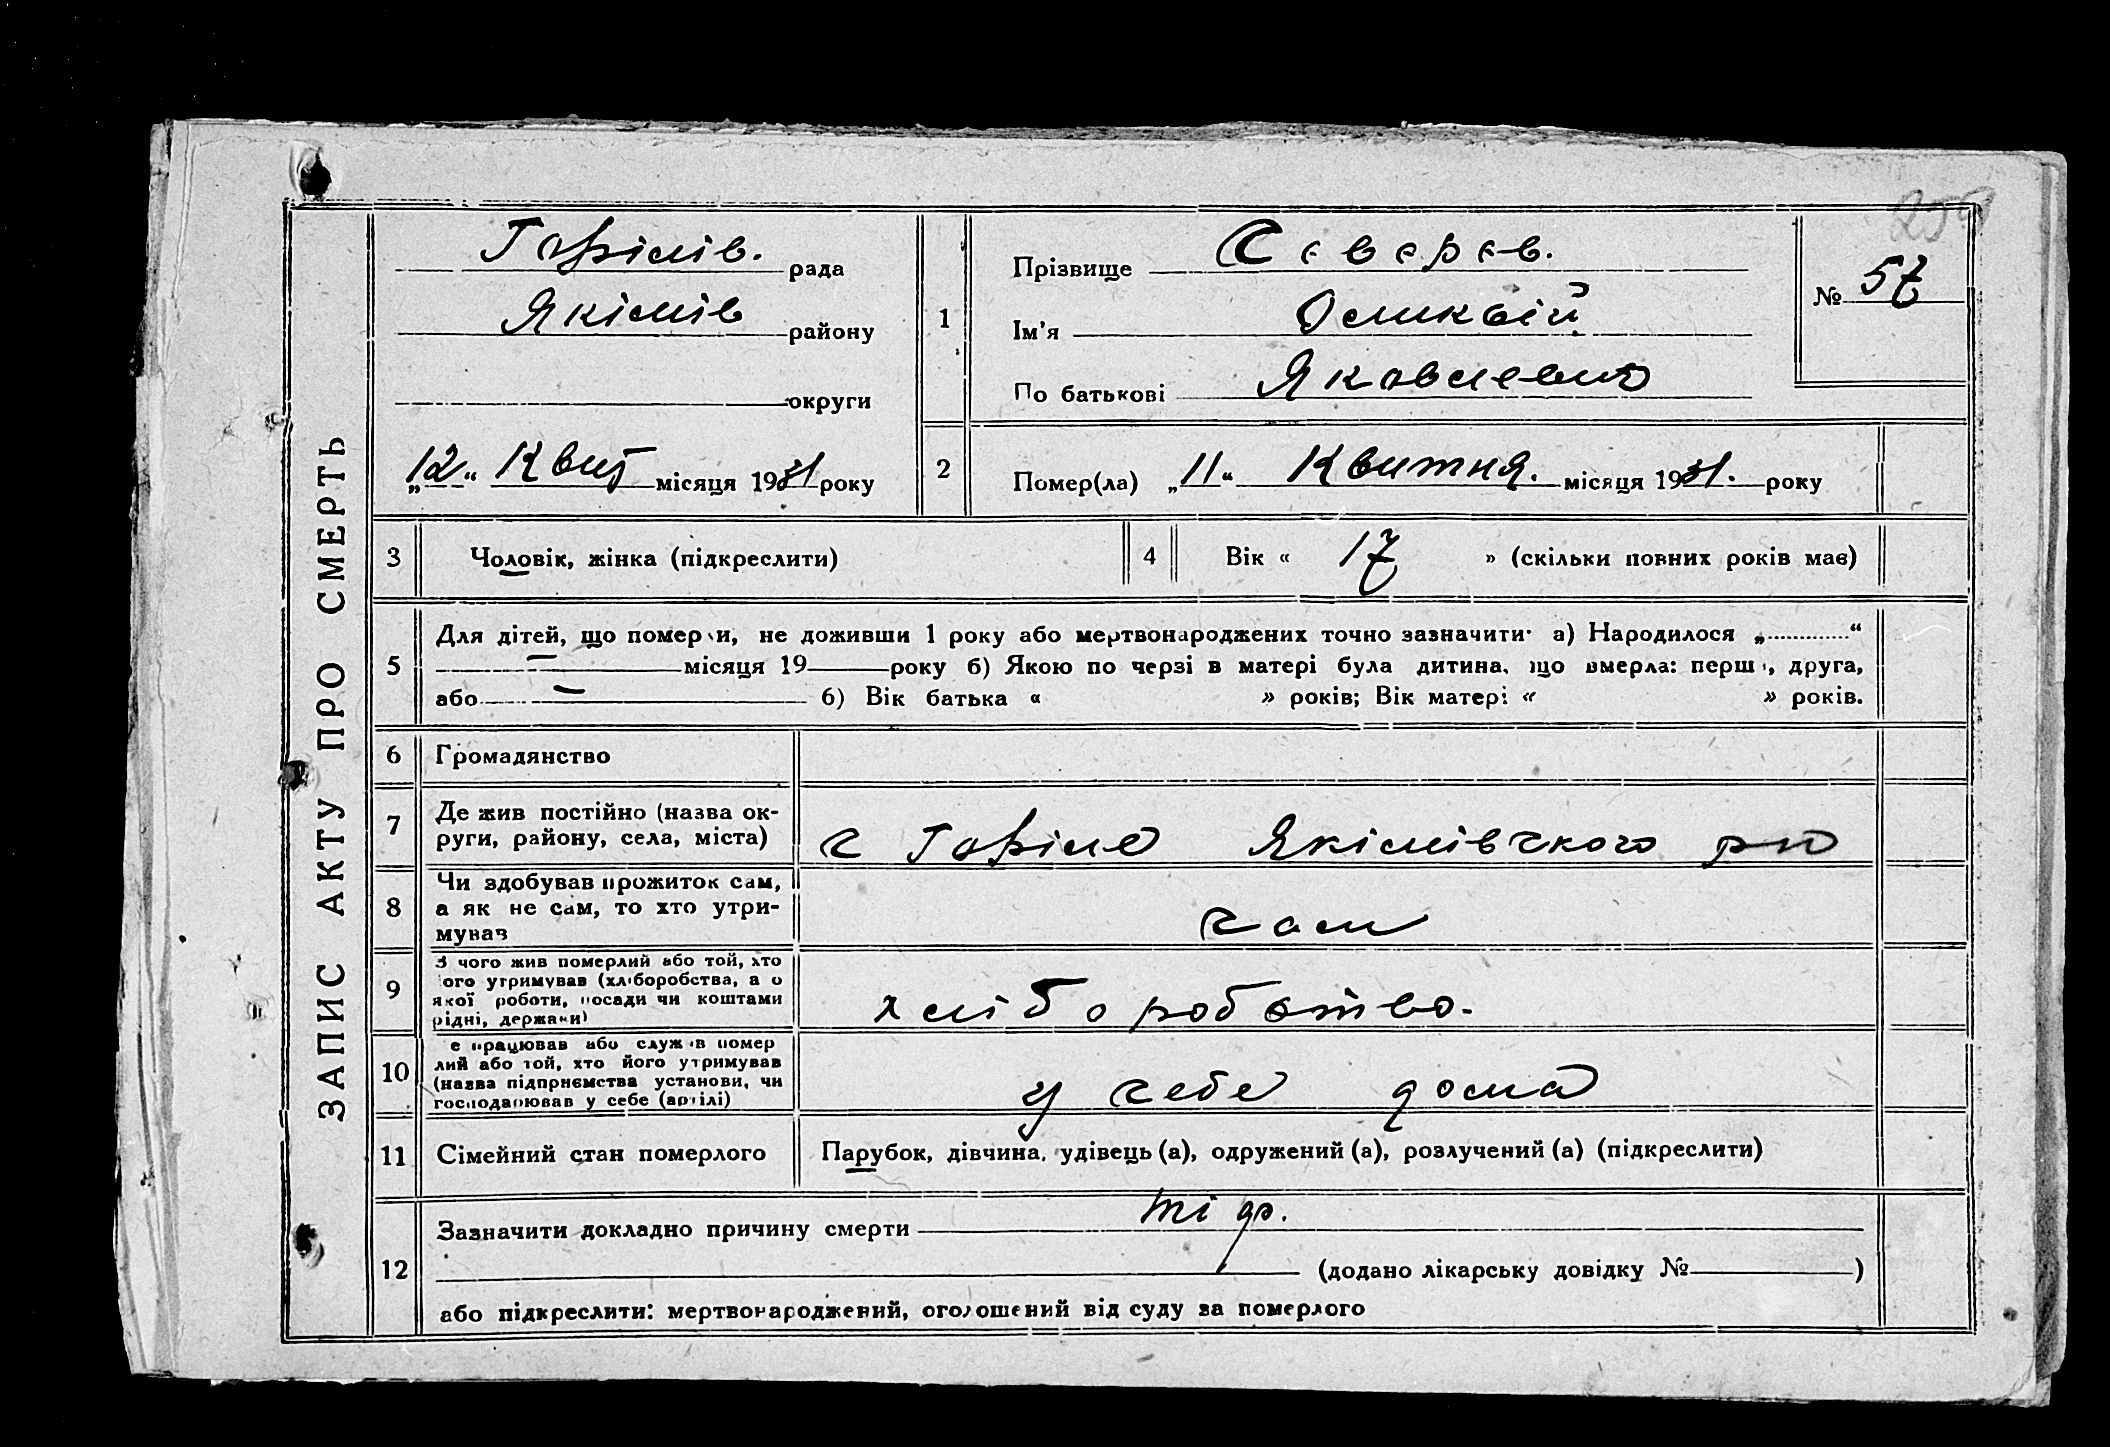 ЗАПИС АКТУ ПРО СМЕРТЬ
Гаріпів. рада
Якімів району
округи
„12“ Квіт місяця 1931 року
1
Прізвище Сєвєрєв.
Ім'я
По батькові Яковлевич
№ 57
2
Помер(ла) „11“ Квитня. місяця 1931. року
3
Чоловік, жінка (підкреслити)
4
Вік « 17 » (скільки повних років має)
5
Для дітей, що померли, не доживши 1 року або мертвонароджених точно зазначити: а) Народилося „ “
— місяця 19 року б) Якою по черзі в матері була дитина, що вмерла: перша, друга,
або — б) Вік батька « » років; Вік матері « » років.
6
Громадянство
7
Де жив постійно (назва ок-
руги, району, села, міста)
с Якімівського р-н
8
Чи здобував прожиток сам,
а як не сам, то хто утри-
мував
сам
9
З чого жив померлий або той, хто
його утримував (хліборобства, а о
якої роботи, посади чи коштами
рідні, держави)
хліборобство.
10
е працював або служив помер
лий або той, хто його утримував
(назва підприємства установи, чи
господарював у себе (артілі)
у себе дома
11
Сімейний стан померлого
Парубок, дівчина, удівець (а), одружений (а), розлучений (а) (підкреслити)
12
Зазначити докладно причину смерти
(додано лікарську довідку № )
або підкреслити: мертвонароджений, оголошений від суду за померлого